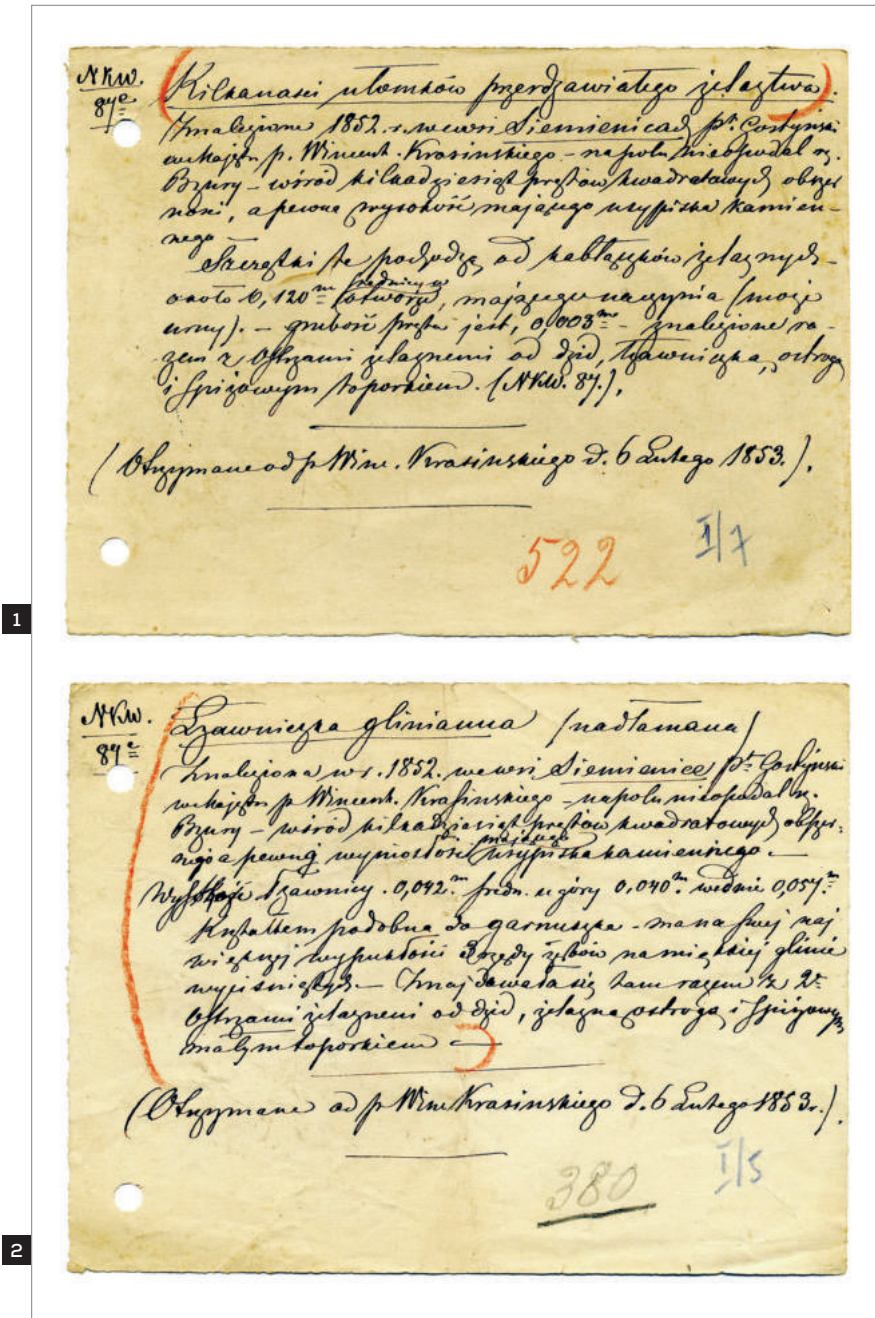 NKW.
87e
Kilkanaści ułomków przerdzawiałego żelaztwa.
Znalezione 1852. r. we wsi Siemienicach pt. Gostyński
w majętn. p. Wincent. Krasińskiego – na polu nieopodal rz.
Bzury – wśród kilkadziesiąt prętów kwadratowych obszer
ności, a pewną wysokość mającego usypiska kamien-
nego –
Szczątki te pochodzą od kabłączków żelaznych –
około 0,120m średnicy w otworze, mającego naczynia (może
urny). – grubość pręta jest, 0,003me – znalezione ra-
zem z Ostrzami żelaznemi od dzid, łzawniczką, ostrogą
i spiżowym toporkiem. (NKW. 87.).
(Otrzymane od p Winc. Krasińskiego d. 6 Lutego 1853.).
522
I/7
1
NKW.
87e
Łzawniczka glinianna (nadłamana)
Znaleziona w r. 1852. we wsi Siemienice pt. Gostyński
w majętn. p Wincent. Krasińskiego – na polu nieopodal rz.
Bzury – wśród kilkadziesiąt prętów kwadratowych obszer-
nego a pewną wyniosłość mającego usypiska kamiennego. –
łzawnicy. 0,042.m średn. u góry 0,040m. w dnie 0,057m
Kształtem podobna do garnuszka – ma na swej naj
większej wypukłości 3 rzędy ząbów na miękkiej glinie
wyciśniętych. – Znajdowała się tam razem z 2a
Ostrzami żelaznemi od dzid, żelazną ostrogą i spiżowym
małym toporkiem –
(Otrzymane od p Winc Krasińskiego d. 6 Lutego 1853r.).
380
I/5
2